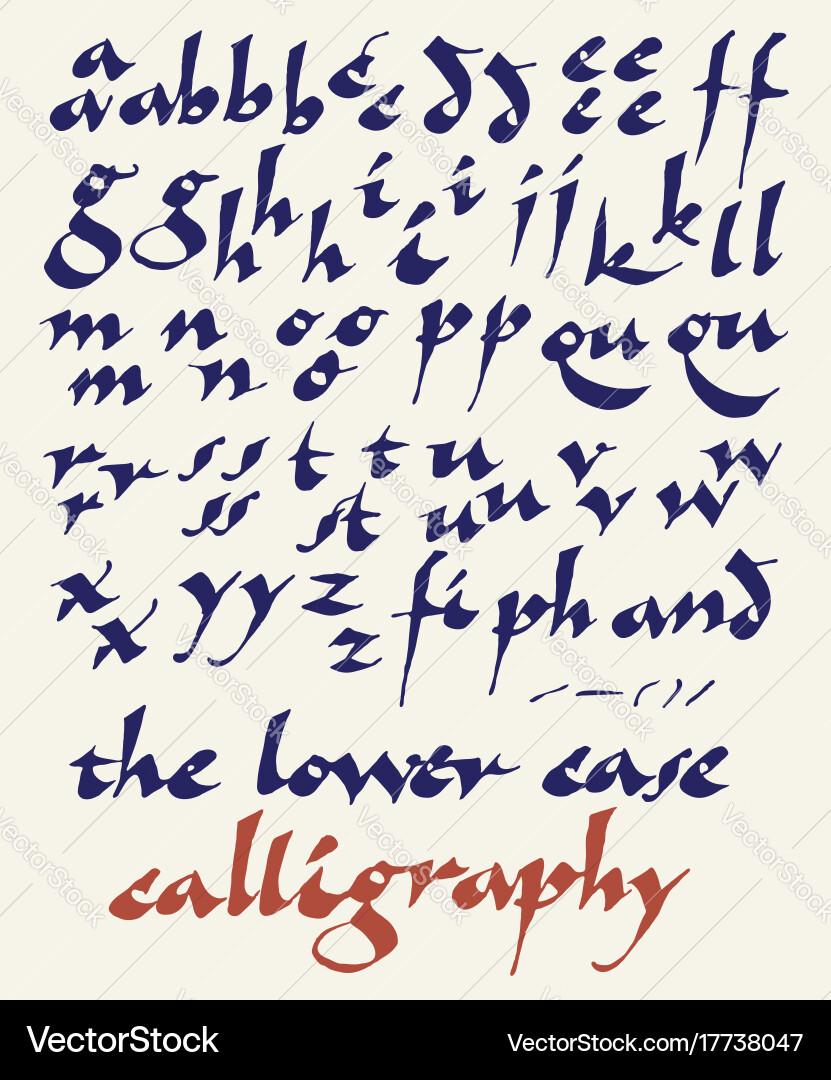 a a a b b b b c c c d d e e e e f f
g g h h h i i i j j k k l l
m m n n o o o p p qu qu
r r r s s s s t t st u u u v v w w
x x y y z z fi ph and
the lower case
calligraphy
VectorStock® VectorStock.com/17738047